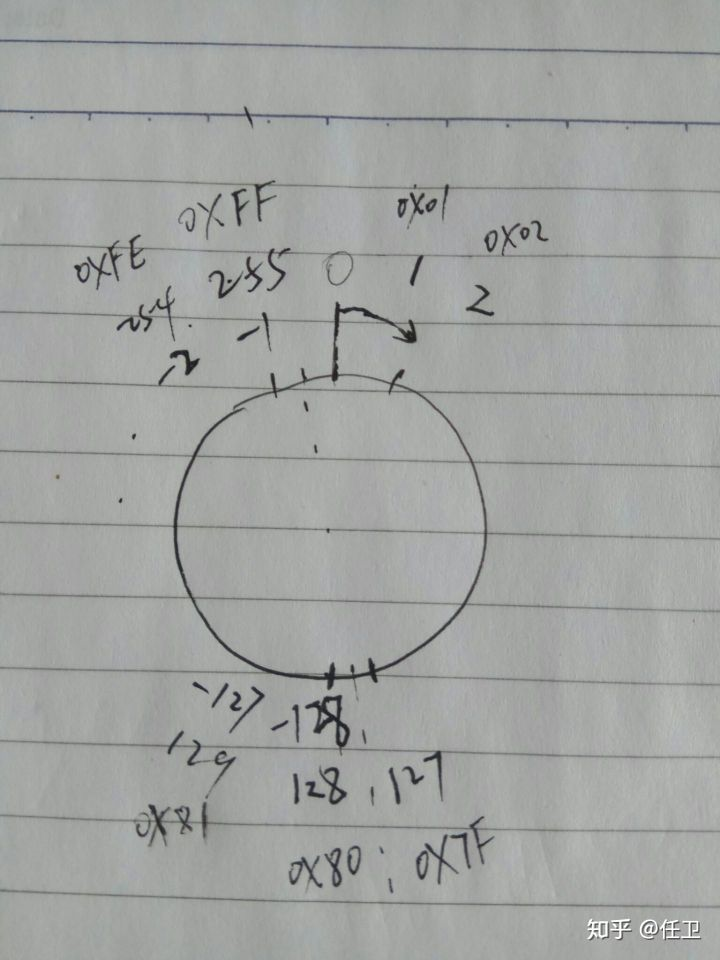 0XFF 0X01
0XFE 0X02
255 0 1
254. 2
-2 -1
-127 -128,
129 128, 127
0X81 0X80; 0X7F
知乎 @任卫